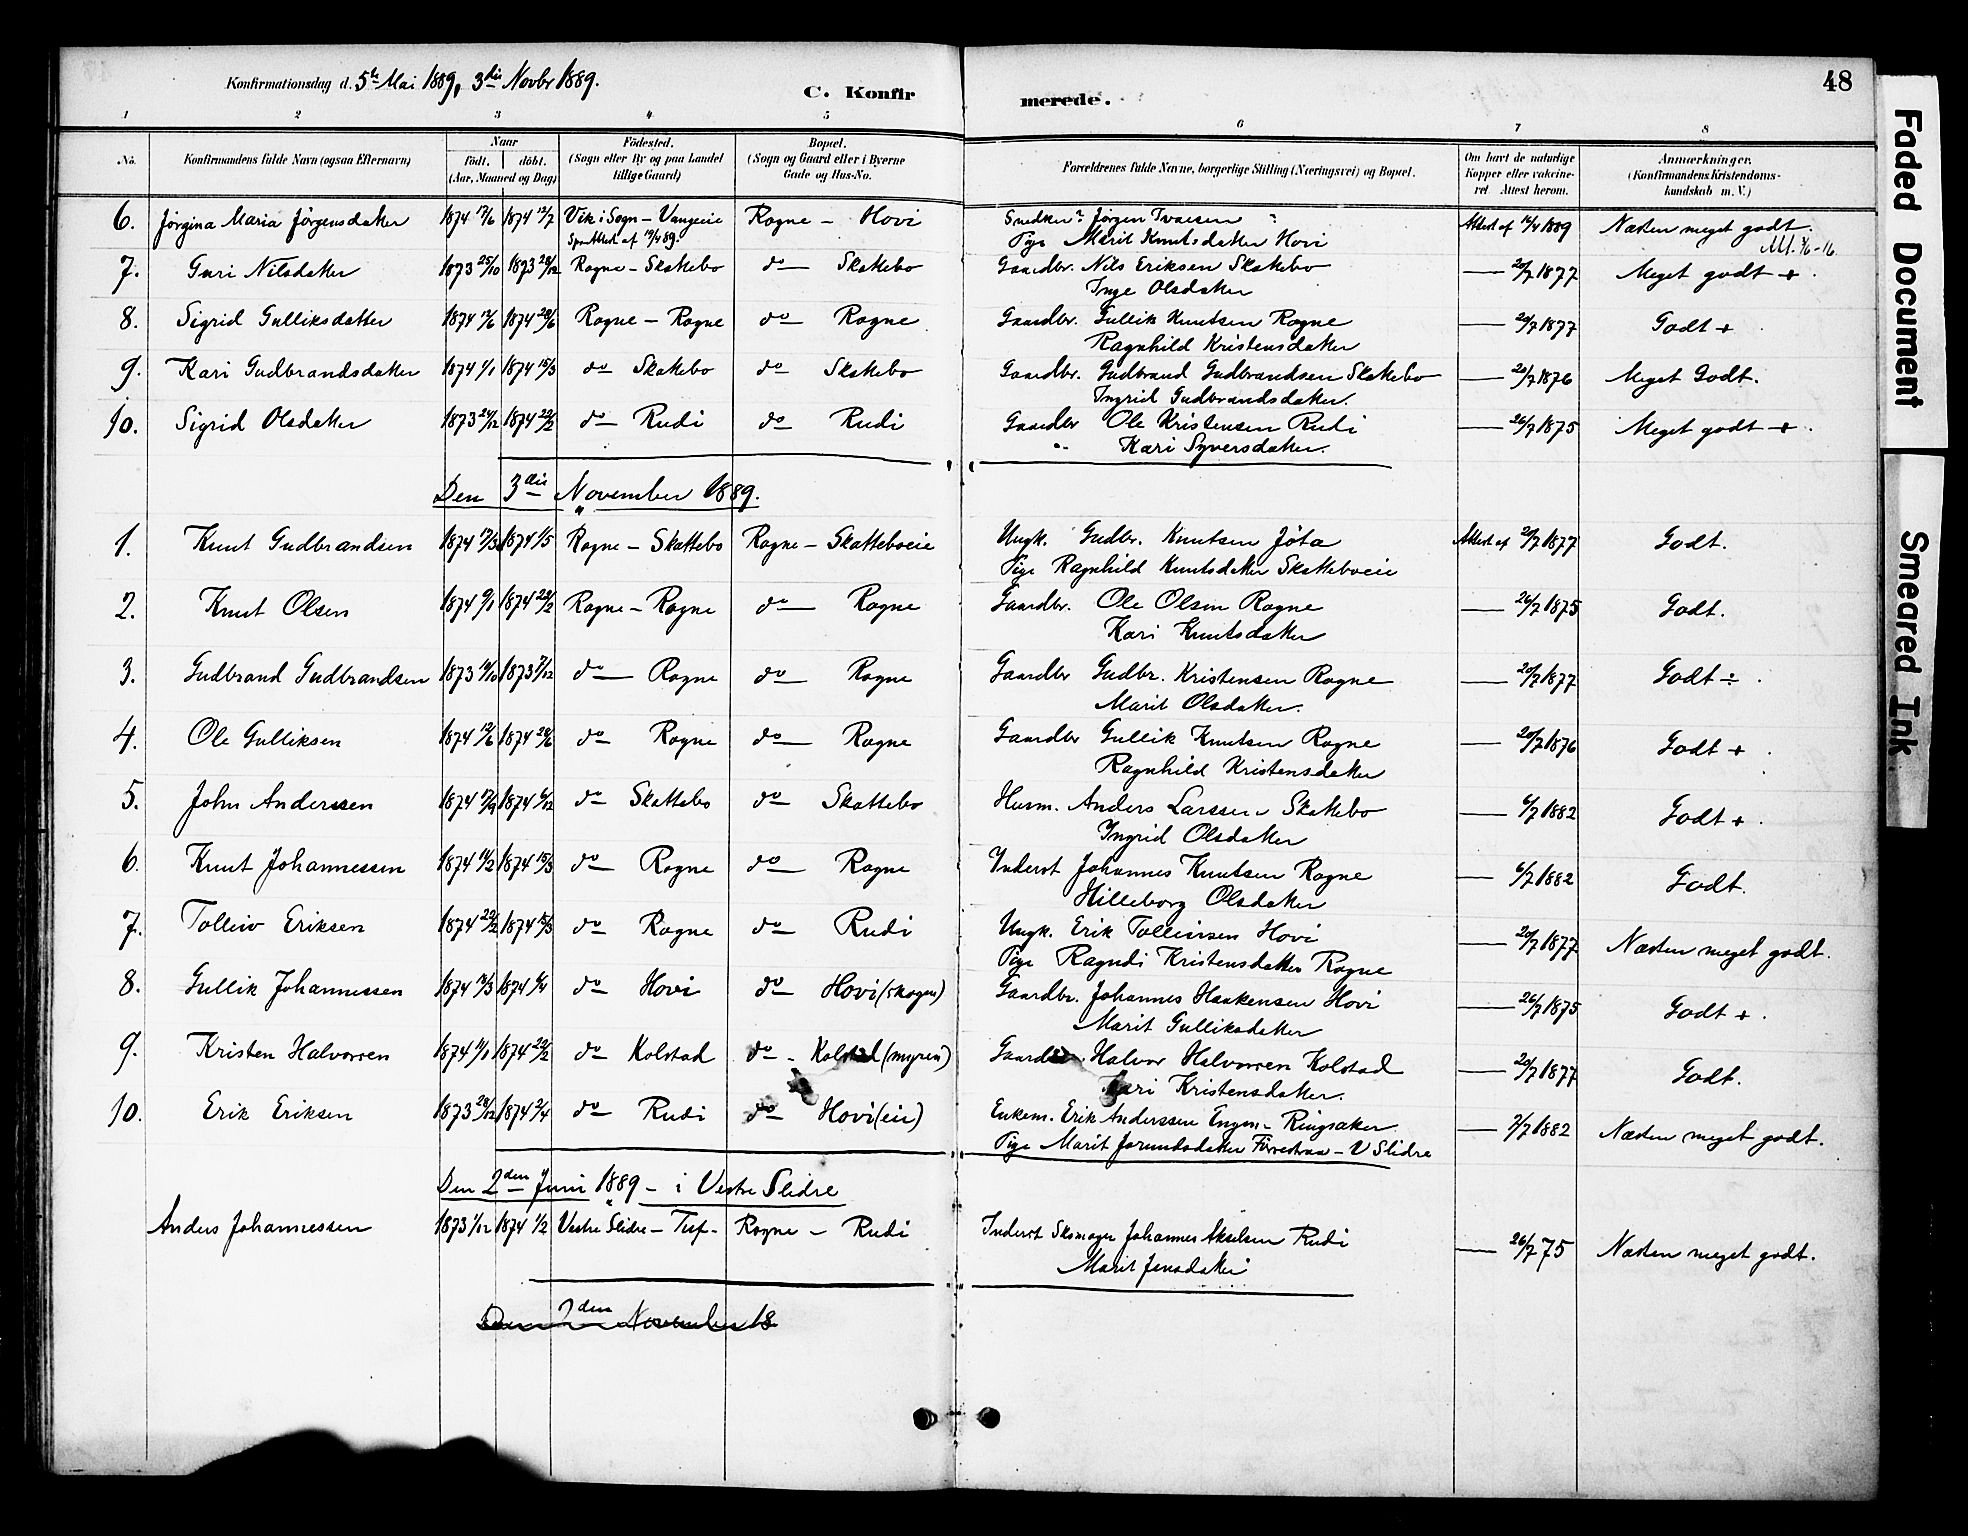 Konfirmationsdag d. 5te Mai 1889, 3die Novbr 1889.
C. Konfirmerede.
48
1 2 3 4 5 6 7 8
No. Konfirmandens fulde Navn (ogsaa Efternavn) Naar født. døbt. (Aar, Maaned og Dag) Fødested. (Sogn eller By og paa Landet tillige Gaard) Bopæl. (Sogn og Gaard eller i Byerne Gade og Hus-No. Forældrenes fulde Navne, borgerlige Stilling (Næringsvei) og Bopæl. Om havt de naturlige Kopper eller vakcineret. Attest herom. Anmærkninger. (Konfirmandens Kristendomskundskab m. V.)
6. Jørgina Maria Jørgensdatter 1874 17/6 1874 12/7 Vik i Sogn - Vangeeie Rogne - Hovi Snedker? Jørgen Tvaesen ? Attest af 12/4 1889 Næsten meget godt.
Pige Marit Knutsdatter Hovi
7. Guri Nilsdatter 1873 25/10 1873 28/12 Rogne - Skattebo do Skattebo Gaardbr. Nils Eriksen Skattebo 20/7 1877 Meget godt +
Inge Olsdatter
8. Sigrid Gulliksdatter 1874 12/6 1874 28/6 Rogne - Rogne do Rogne Gaardbr. Gullik Knutsen Rogne 20/7 1877 Godt +
Ragnhild Kristensdatter
9. Kari Gudbrandsdatter 1874 1/1 1874 15/3 do Skattebo do Skattebo Gaardbr. Gudbrand Gudbrandsen Skattebo 20/7 1876 Meget Godt.
Ingrid Gudbrandsdatter.
10. Sigrid Olsdatter 1873 24/12 1874 22/2 do Rudi do Rudi Gaardbr Ole Kristensen Rudi 26/7 1875 Meget godt +
Kari Syversdatter.
Den 3die November 1889.
1. Knut Gudbrandsen 1874 17/3 1874 1/5 Rogne - Skattebo Rogne - Skatteboeie Ungk. Gudbr. Knutsen Jøta Attest af 20/7 1877 Godt.
Pige Ragnhild Knutsdatter Skatteboeie
2. Knut Olsen 1874 9/1 1874 22/2 Rogne - Rogne do Rogne Gaardbr. Ole Olsen Rogne 26/7 1875 Godt.
Kari Knutsdatter
3. Gudbrand Gudbrandsen 1873 14/10 1873 7/12 do Rogne do Rogne Gaardbr Gudbr. Kristensen Rogne 20/7 1877 Godt ÷
Marit Olsdatter.
4. Ole Gulliksen 1874 12/6 1874 28/6 do Rogne do Rogne Gaardbr Gullik Knutsen Rogne 20/7 1876 Godt +
Ragnhild Kristensdatter
5. John Anderssen 1874 17/9 1874 6/12 do Skattebo do Skattebo Husm. Anders Larssen Skattebo 6/7 1882 Godt +
Ingrid Olsdatter
6. Knut Johannessen 1874 11/2 1874 15/3 do Rogne do Rogne Inderst Johannes Knutsen Rogne 6/7 1882 Godt.
Hilleborg Olsdatter
7. Tolleiv Eriksen 1874 22/2 1874 15/3 do Rogne do Rudi Ungk. Erik Tolleivsen Hovi 20/7 1877 Næsten meget godt.
Pige Ragndi Kristensdatter Rogne
8. Gullik Johannessen 1874 14/3 1874 6/4 do Hovi do Hovi (skogen) Gaardbr. Johannes Haakensen Hovi 26/7 1875 Godt +
Marit Gulliksdatter
9. Kristen Halvorsen 1874 11/1 1874 22/2 do Kolstad do - Kolstad (myren) Halvor Halvorsen Kolstad 20/7 1877 Godt.
Kari Kristensdatter.
10. Erik Eriksen 1873 28/12 1874 2/4 do Rudi do Hovi (eie) Enkem. Erik Anderssen Engen - Ringsaker 7/7 1882 Næsten meget godt.
Pige Marit Jorundsdatter - V Slidre
Den 2den Juni 1889 - i Vestre Slidre
Anders Johannessen 1873 1/12 1874 1/2 Vestre Slidre - Rogne - Rudi Inderst Skomager Johannes Akselsen Rudi 26/7 75 Næsten meget godt.
Marit Jensdatter
Den 2den November 18
Faded Document
Smeared Ink